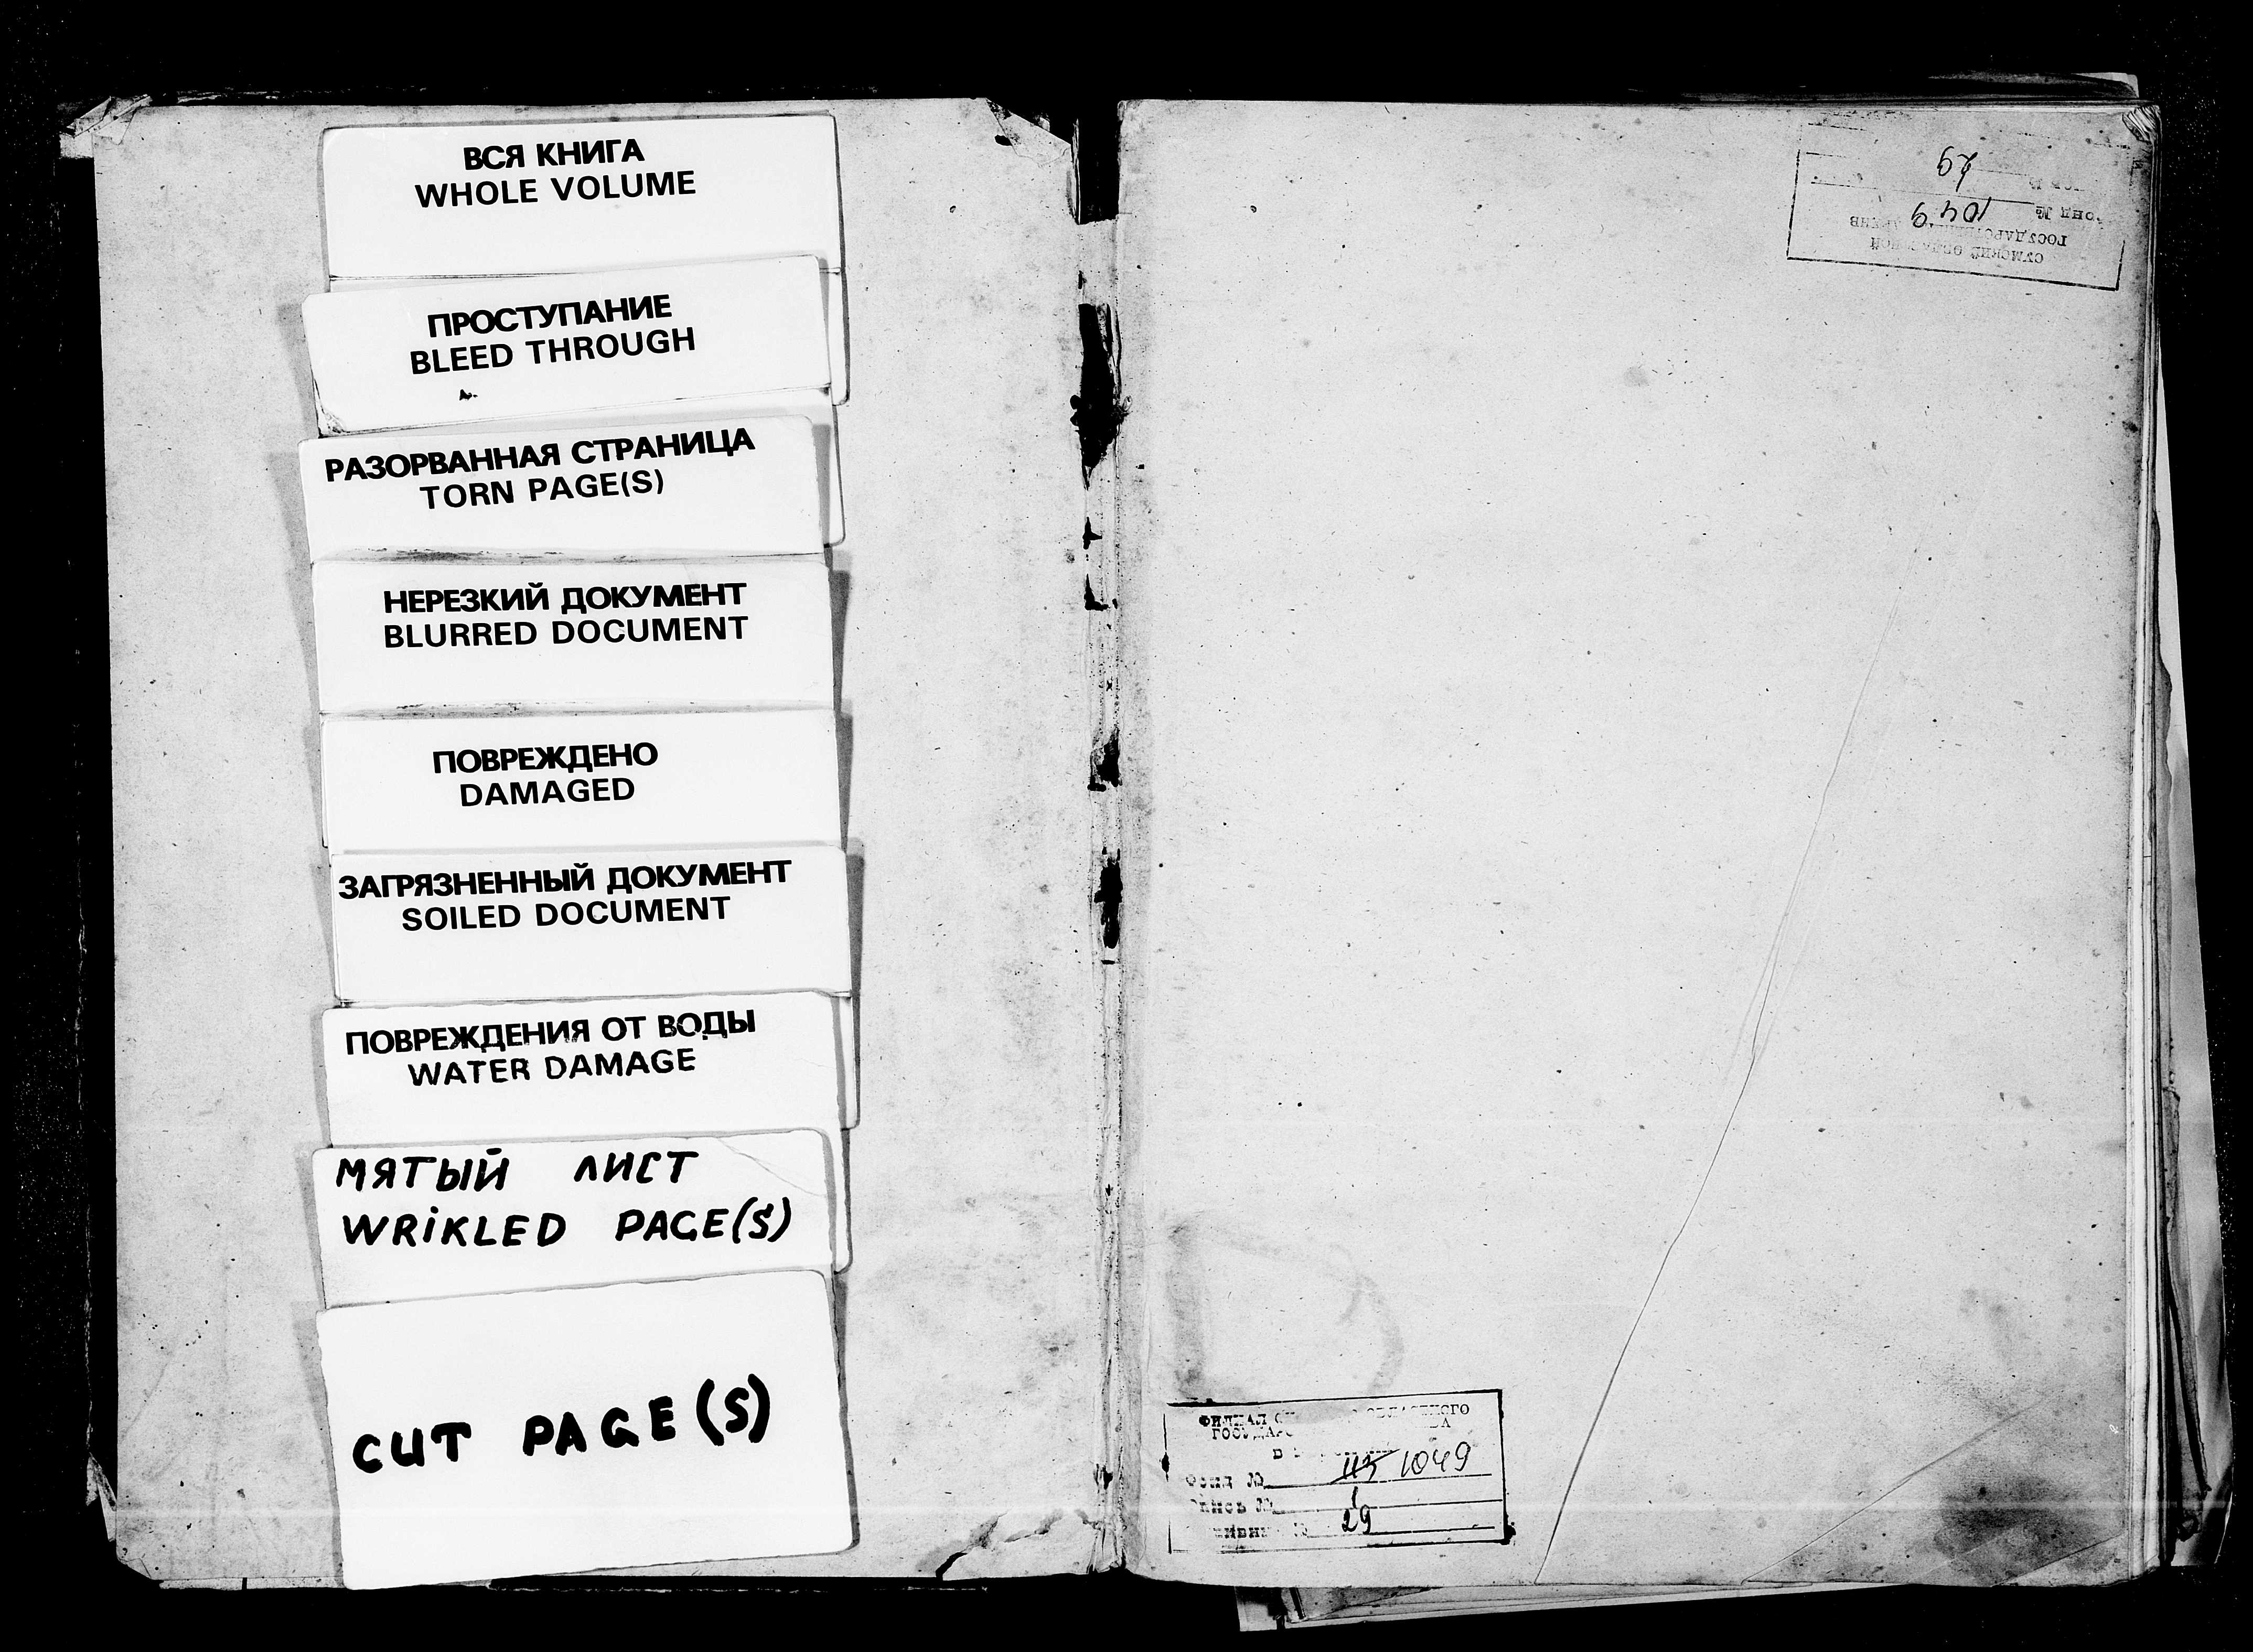 ВСЯ КНИГА
WHOLE VOLUME
ПРОСТУПАНИЕ
BLEED THROUGH
РАЗОРВАННАЯ СТРАНИЦА
TORN PAGE(S)
НЕРЕЗКИЙ ДОКУМЕНТ
BLURRED DOCUMENT
ПОВРЕЖДЕНО
DAMAGED
ЗАГРЯЗНЕННЫЙ ДОКУМЕНТ
SOILED DOCUMENT
ПОВРЕЖДЕНИЯ ОТ ВОДЫ
WATER DAMAGE
МЯТЫЙ ЛИСТ
WRIKLED PAGE(S)
CUT PAGE(S)
СУМСКИЙ ОБЛАСТНОЙ
ГОСУДАРСТВЕННЫЙ АРХИВ
1049
29
ФИЛИАЛ ОБЛАСТНОГО
В
Фонд № 1049
1
29